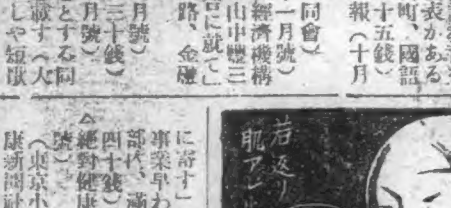 表がある
町、國語
十五錢）
報（十月
同會）
一月號）
經濟機構
山中豐三
に就て」
路、金融
月號）
三十錢）
月號）
とする同
載す（大
しや短歌
に寄す」
事業早わ
部代、滿
四十錢）
△絕對健康
號）
（東京小
康新聞社
若返り
肌アレ